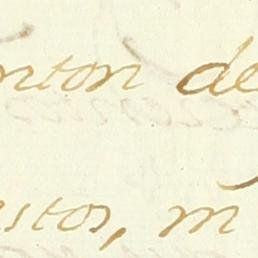 nton de
stos, m